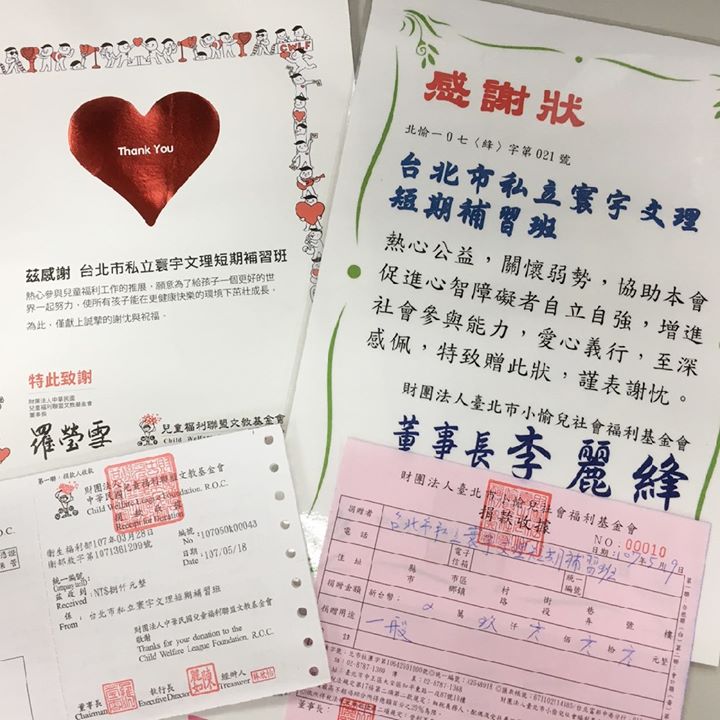 CWLF
Thank You
茲感謝 台北市私立寰宇文理短期補習班
熱心參與兒童福利工作的推展,願意為了給孩子一個更好的世
界一起努力,使所有孩子能在更健康快樂的環境下茁壯成長。
為此,僅獻上誠摯的謝忱與祝福。
特此致謝
財團法人中華民國
兒童福利聯盟文教基金會
董事長
羅瑩雪
兒童福利聯盟文教基金會
Child Welfare
感謝狀
北愉一0七〈絳〉字第021號
台北市私立寰宇文理
短期補習班
熱心公益,關懷弱勢,協助本會
促進心智障礙者自立自強,增進
社會參與能力,愛心義行,至深
感佩,特致贈此狀,謹表謝忱。
財團法人臺北市小愉兒社會福利基金會
董事長李麗絳
第一聯:捐款人收執
財團法人兒童福利聯盟文教基金會
中華民國
Child Welfare League Foundation, R.O.C.
捐款收據
Receipt for Donation
衛生福利部107年03月28日
衛部救字第1071361209號
NO:107050k00043
日期
Date:107/05/18
統一編號:
茲收到
Received:NT$捌仟元整
係
From:台北市私立寰宇文理短期補習班
財團法人中華民國兒童福利聯盟文教基金會
敬謝
Thanks for your donation to the
Child Welfare League Foundation, R.O.C.
董事長
Chairman
執行長
Executive Director
經辦人
Treasurer
財團法人臺北市小愉兒社會福利基金會
捐款收據
NO:00010
日期:107年5月9日
捐贈者
台北市私立寰宇文理短期補習班
電話
電子信箱
統一編號
住址
縣市 市區鄉鎮 村里 街路 段 巷弄 號 樓
捐贈金額
新台幣: 萬 玖仟 佰 拾 元整
捐贈用途
一般
註
董事長: